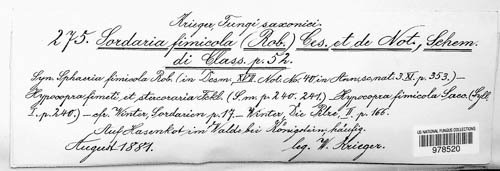 Krieger Fungi saxonici.
275. Sordaria fimicola (Rob.) Ces. et de Not., Schem.
di Class. p. 52.
Syn. Sphaeria fimicola Rob. (in Desm. XVII. Not. No. 40 in Ann. sc. nat. 3. XI. p. 353.) —
Hypocopra fimeti et stercoraria Fckl. (S. m. p. 240. 241.) — Hypocopra fimicola Sacc. (Syll.
I. p. 240.) — cfr. Winter, Sordarien p. 17. — Winter, Die Pilze, II. p. 166.
Auf Hasenkot im Walde bei Königstein, häufig.
August 1881. leg. W. Krieger.
US NATIONAL FUNGUS COLLECTIONS
978520